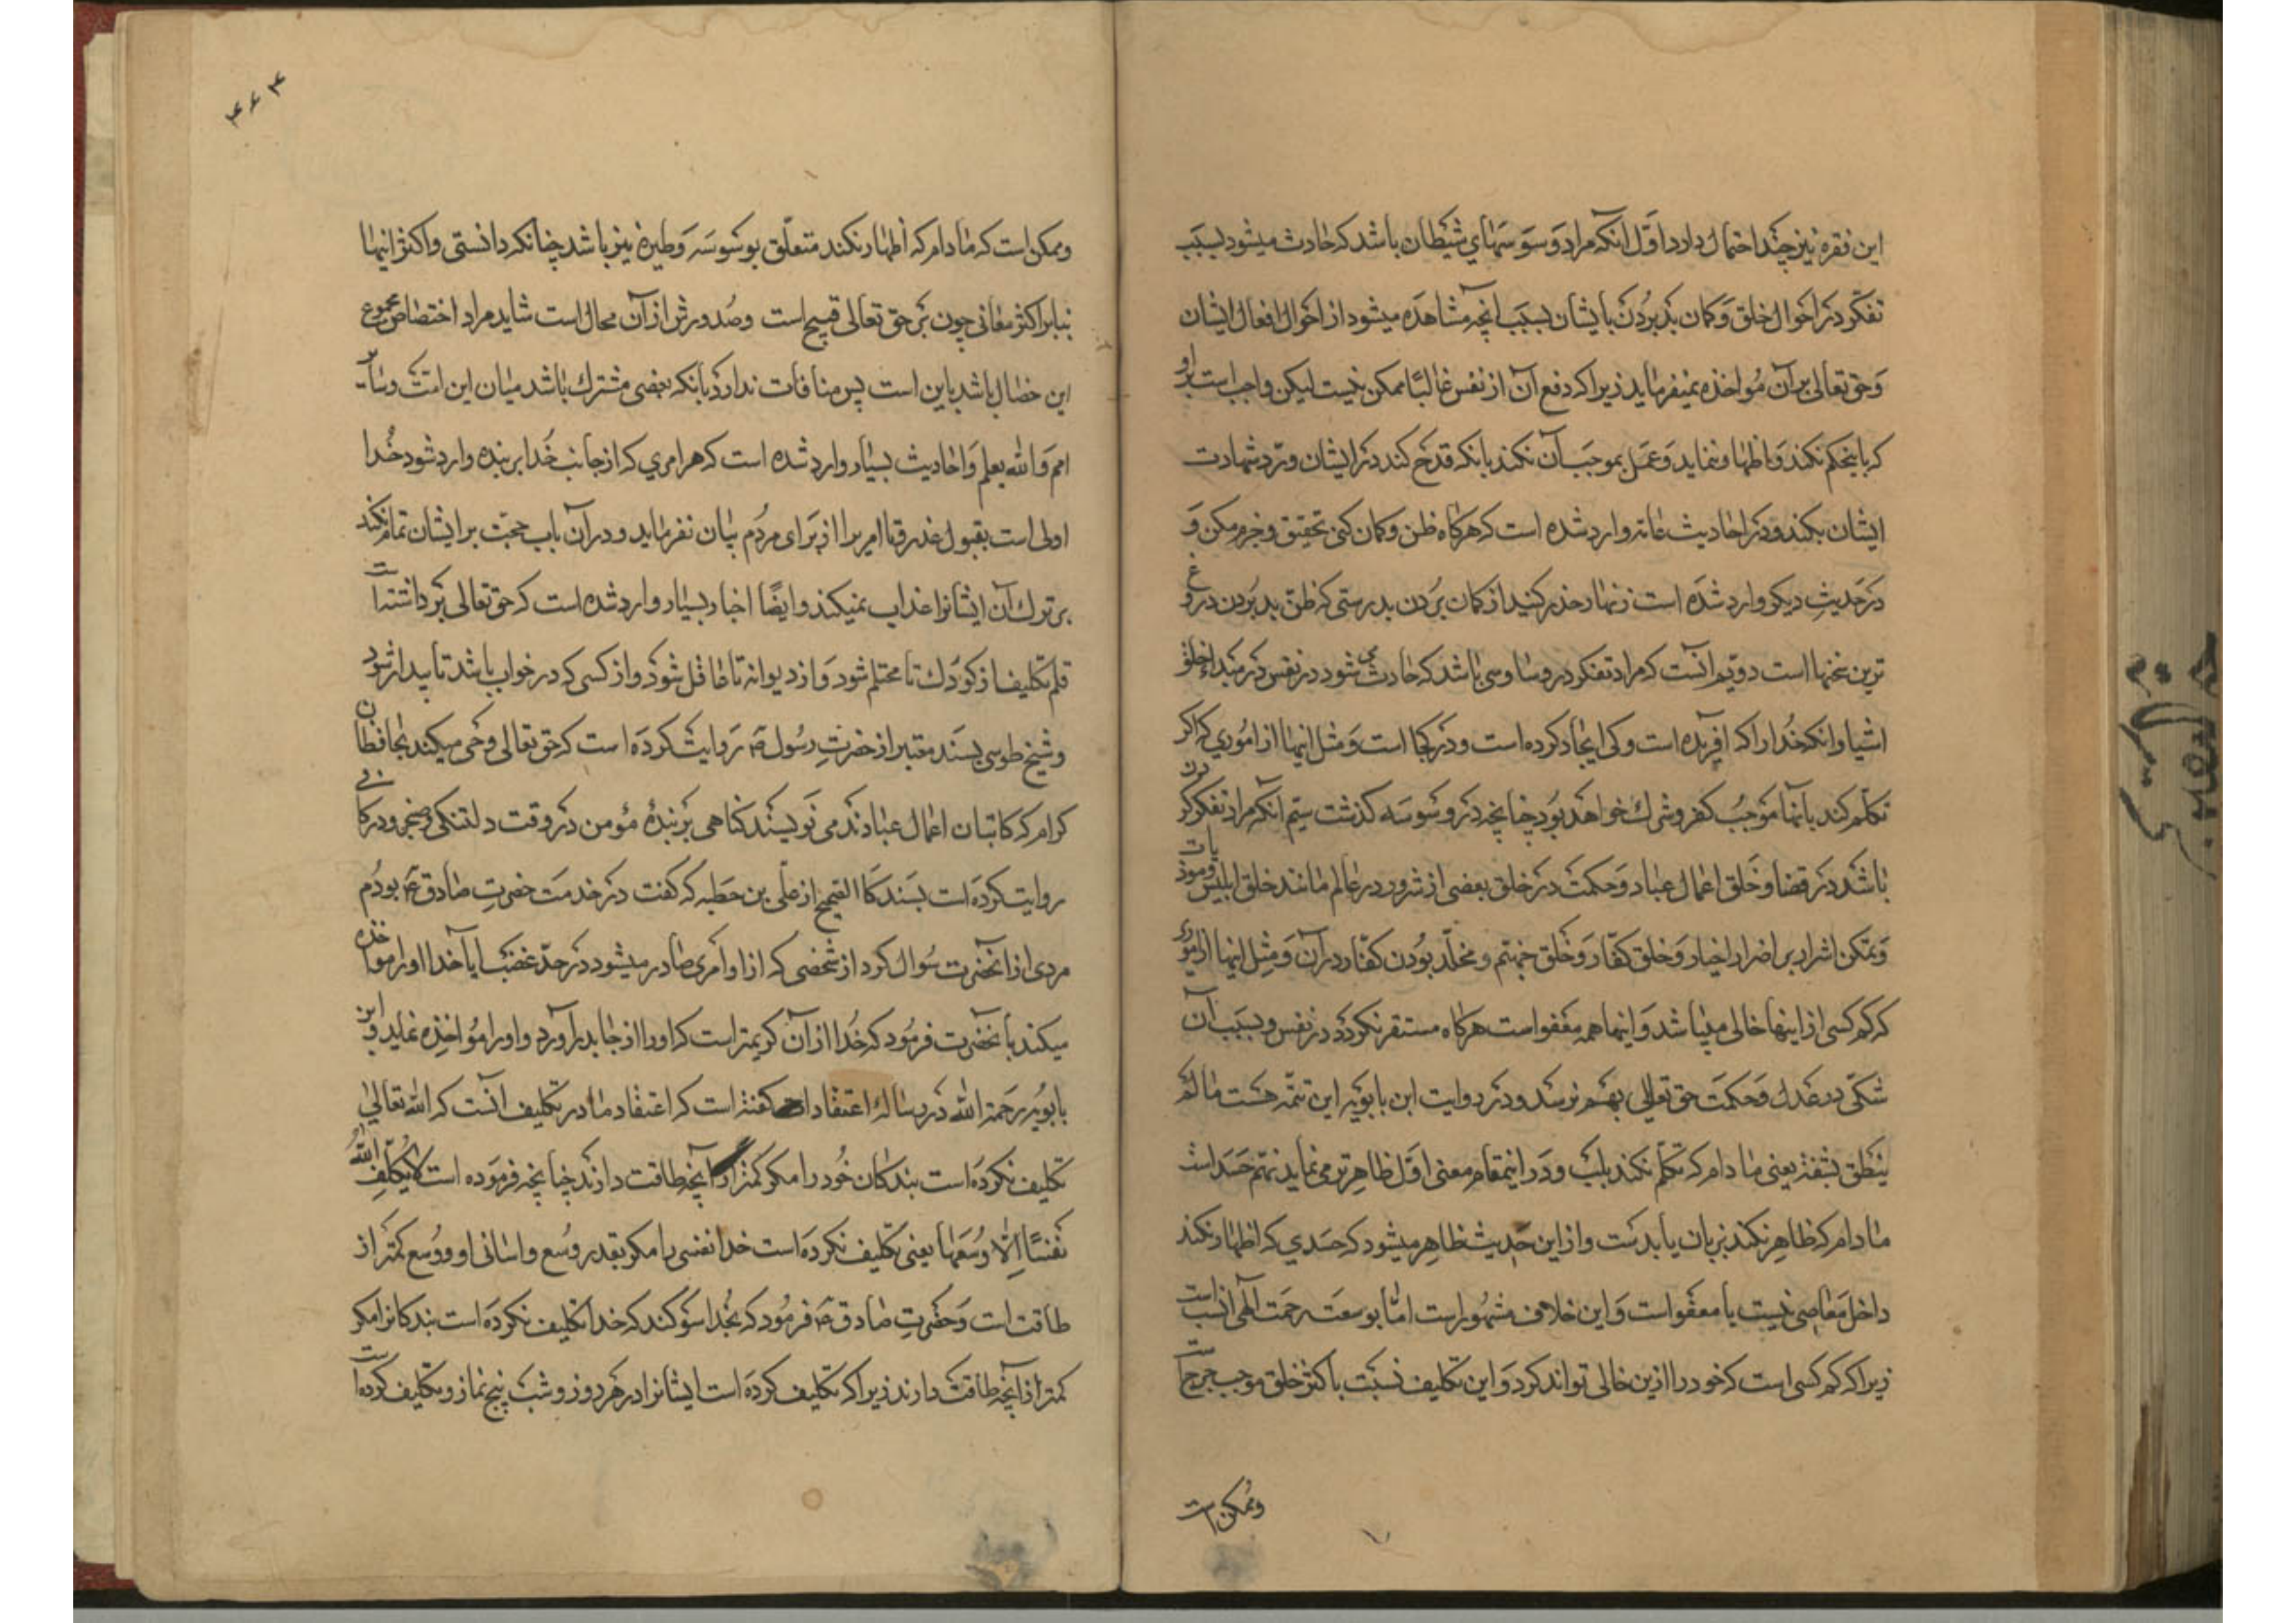 این فقره نیز چند احتمال دارد اوّل انکه مراد وسوسهای شیطان باشد که حادث میشود بسبب
تفکّر در احوال خلق و کمان بد بردن بایشان بسبب آنچه مشاهده میشود از احوال افعال ایشان
و حق تعالی بر آن مُواخذه نمیفرماید زیرا که دفع آن از نفس غالبًا ممکن نیست لیکن واجب است براو
که باینحکم نکند و اظهار ننماید و عمل بموجب آن نکند بانکه قدح کند در ایشان و ردّ شهادت
ایشان بکند و در احادیث عامّه وارد شده است که هرکاه ظن و کمان کنی تحقیق و جزم مکن و
در حدیثِ دیکر وارد شده است زنهار حذر کنید از کمان بردن بدرستی که ظنّ بد بردن دروغ
ترین سخنها است دویّم انست که مراد تفکّر در وساوسی باشد که حادث می شود در نفس در مبدا خلق
اشیا و انکه خُدا را که افریده است و کی ایجاد کرده است و در کجا است و مثل اینها از اموری که اکر
تکلّم کند بانها موجبُ کفر و شرک خواهد بود چنانچه در وسوسه کذشت سیّم انکه مراد تفکر کردن
باشد در قضا و خلق اعمال عباد و حکمت در خلق بعضی از شرور در عالم مانند خلق ابلیس و موذیات
و تمکن اشرار بر اضرار اخیار و خلق کفّار و خلق جهنّم و مخلّد بودن کفّار در آن و مثل اینها از اموری
که کم کسی از اینها خالی میباشد و اینها همه معفو است هرکاه مستقر نکردد در نفس و بسبب آن
شکّی در عدل و حکمت حق تعالی بهم نرسد و در روایت ابن بابویه این تتمّه هست ما لم
ینطق بشفة یعنی ما دام که تکلّم نکند بلب و در اینمقام معنی اوّل ظاهرتر می نماید نهم حسد است
ما دام که ظاهر نکند بزبان یا بدست و از این حدیث ظاهر میشود که حسدی که اظهار نکند
داخل معاصی نیست یا معفو است و این خلاف مشهور است امّا بوسعت رحمت الهی انسب است
زیرا که کم کسی است که خود را ازین خالی تواند کرد و این تکلیف نسبت باکثر خلق موجب حرج است
و ممکن است
۴۶۴
و ممکن است که ما دام که اظهار نکند متعلّق بوسوسه و طیره نیز باشد چنانکه دانستی و اکثر اینها
بنابر اکثر معانی چون بر حق تعالی قبیح است و صُدورش از آن محال است شاید مراد اختصاص مجموع
این خصال باشد باین امت پس منافات ندارد بانکه بعضی مشترک باشد میان این امّت و سایر
امم و الله یعلم و احادیث بسیار وارد شده است که هر امری که از جانب خُدا بر بنده وارد شود خُدا
اولی است بقبول عذر و تا امریرا از برای مردُم بیان نفرماید و در آن باب حجّت بر ایشان تمام نکند
بر ترک آن ایشانرا عذاب نمیکند و ایضًا اخبار بسیار وارد شده است که حق تعالی برداشته است
قلم تکلیف از کودک تا محتلم شود و از دیوانه تا عاقل شود و از کسی که در خواب باشد تا بیدار شود
و شیخ طوسی بسند معتبر از حضرتِ رسُول ص روایت کرده است که حق تعالی وحی میکند بحافظان
کرام که کاتبان اعمال عبادند می نویسند کناهی بر بندهٔ مؤمن در وقت دلتنکی و ضجر و در کافی
روایت کرده است بسند کالصحیح از علی بن عطیه که کفت در خدمت حضرتِ صادق ع بودم
مردی از آنحضرت سُوال کرد از شخصی که از او امری صادر میشود در حدّ غضب ایا خدا او را مواخذه
میکند بآن حضرت فرمُود که خُدا از آن کریمتر است که او را از جا بدر آورد و او را مُواخذه نماید و ابن
بابویه رحمة الله در رسالهٔ اعتقادات کفته است که اعتقاد ما در تکلیف انست که الله تعالی
تکلیف نکرده است بندکان خُود را مکر کمتر از آنچه طاقت دارند چنانچه فرموده است لا یکلّف اللهُ
نفسًا اِلّا وُسعَها یعنی تکلیف نکرده است خدا نفسی را مکر بقدر وُسع و اسانی او و وُسع کمتر از
طاقت است و حضرتِ صادق ع فرمُود که بخُدا سوکند که خدا تکلیف نکرده است بندکانرا مکر
کمتر از آنچه طاقت دارند زیرا که تکلیف کرده است ایشانرا در هر روز و شب پنج نماز و تکلیف کرده است